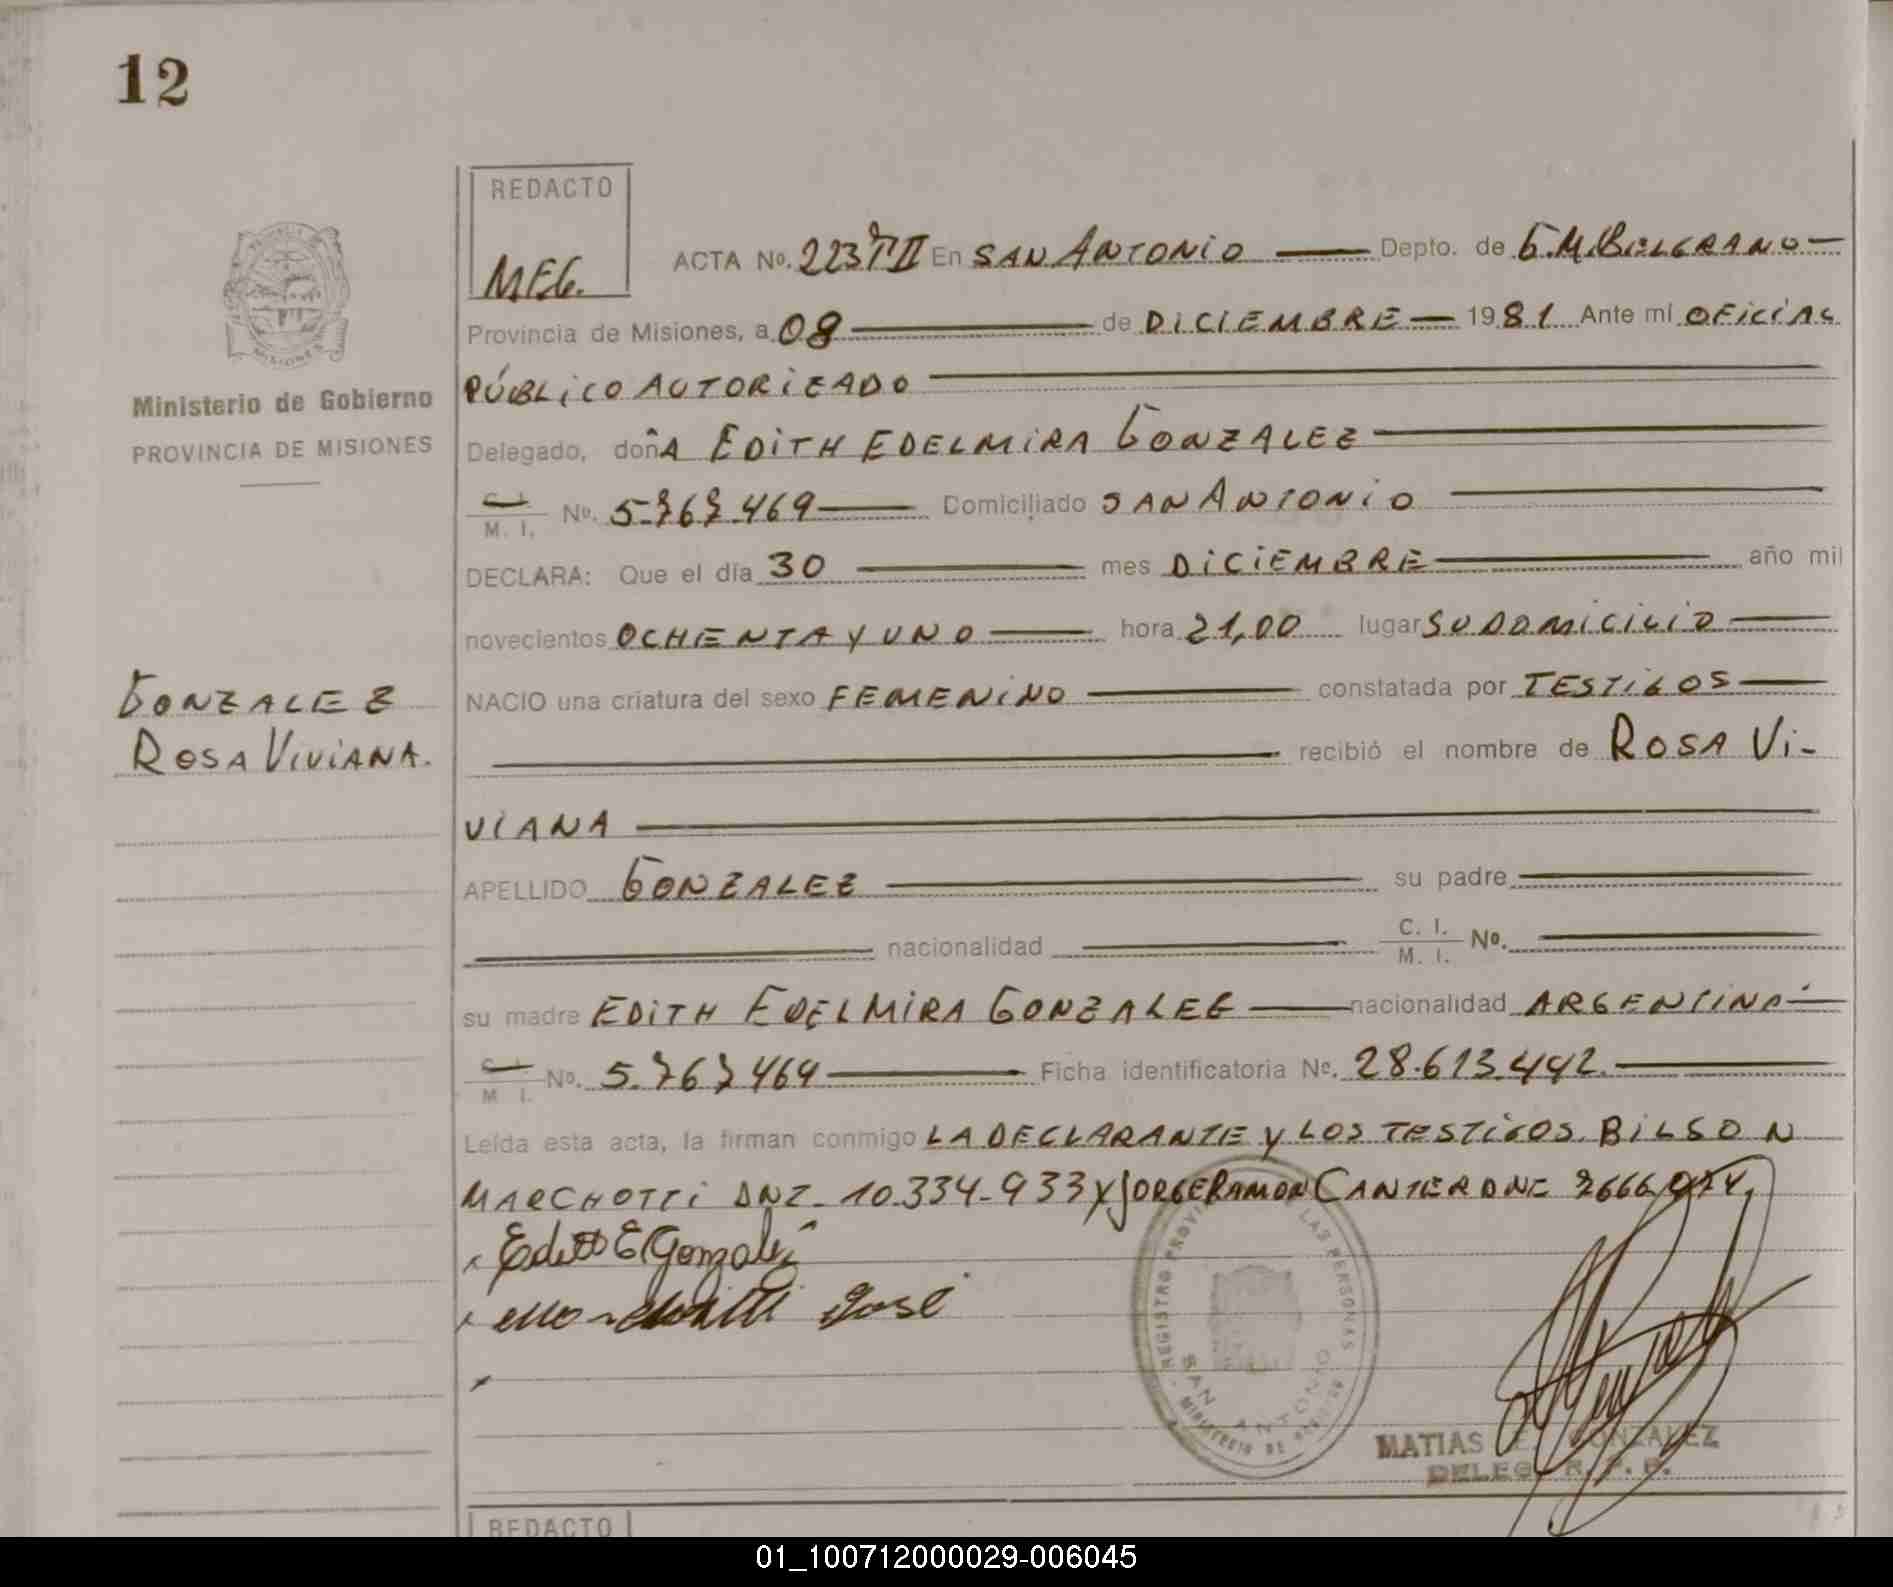 12
REDACTO
MEG.
ACTA No. 223 TII En SAN ANTONIO Depto. de G.M.BELGRANO
Provincia de Misiones, a 08 de DICIEMBRE 1981 Ante mí OFICIAL
PÚBLICO AUTORIZADO
Ministerio de Gobierno
PROVINCIA DE MISIONES
Delegado, doñA EDITH EDELMIRA GONZALEZ
C. I.
M. I. No. 5.767.469 Domiciliado SAN ANTONIO
DECLARA: Que el día 30 mes DICIEMBRE año mil
novecientos OCHENTA Y UNO hora 21,00 lugar SU DOMICILIO
GONZALEZ
ROSA VIVIANA.
NACIO una criatura del sexo FEMENINO constatada por TESTIGOS
recibió el nombre de ROSA VI-
VIANA
APELLIDO GONZALEZ su padre
nacionalidad C. I.
M. I. No.
su madre EDITH EDELMIRA GONZALEZ nacionalidad ARGENTINA
C. I.
M. I. No. 5.767469 Ficha identificatoria No. 28.613.442.
Leída esta acta, la firman conmigo LA DECLARANTE Y LOS TESTIGOS. BILSON
MARCHOTTI DNI- 10.334-933 Y JORGE RAMON CANTERO DNI
Edith E Gonzalez
José
REGISTRO PROVI LAS PERSONAS
SAN ANTONIO
MINISTERIO DE
MATIAS E. GONZALEZ
DELEG. R. P. P.
REDACTO
01_100712000029-006045